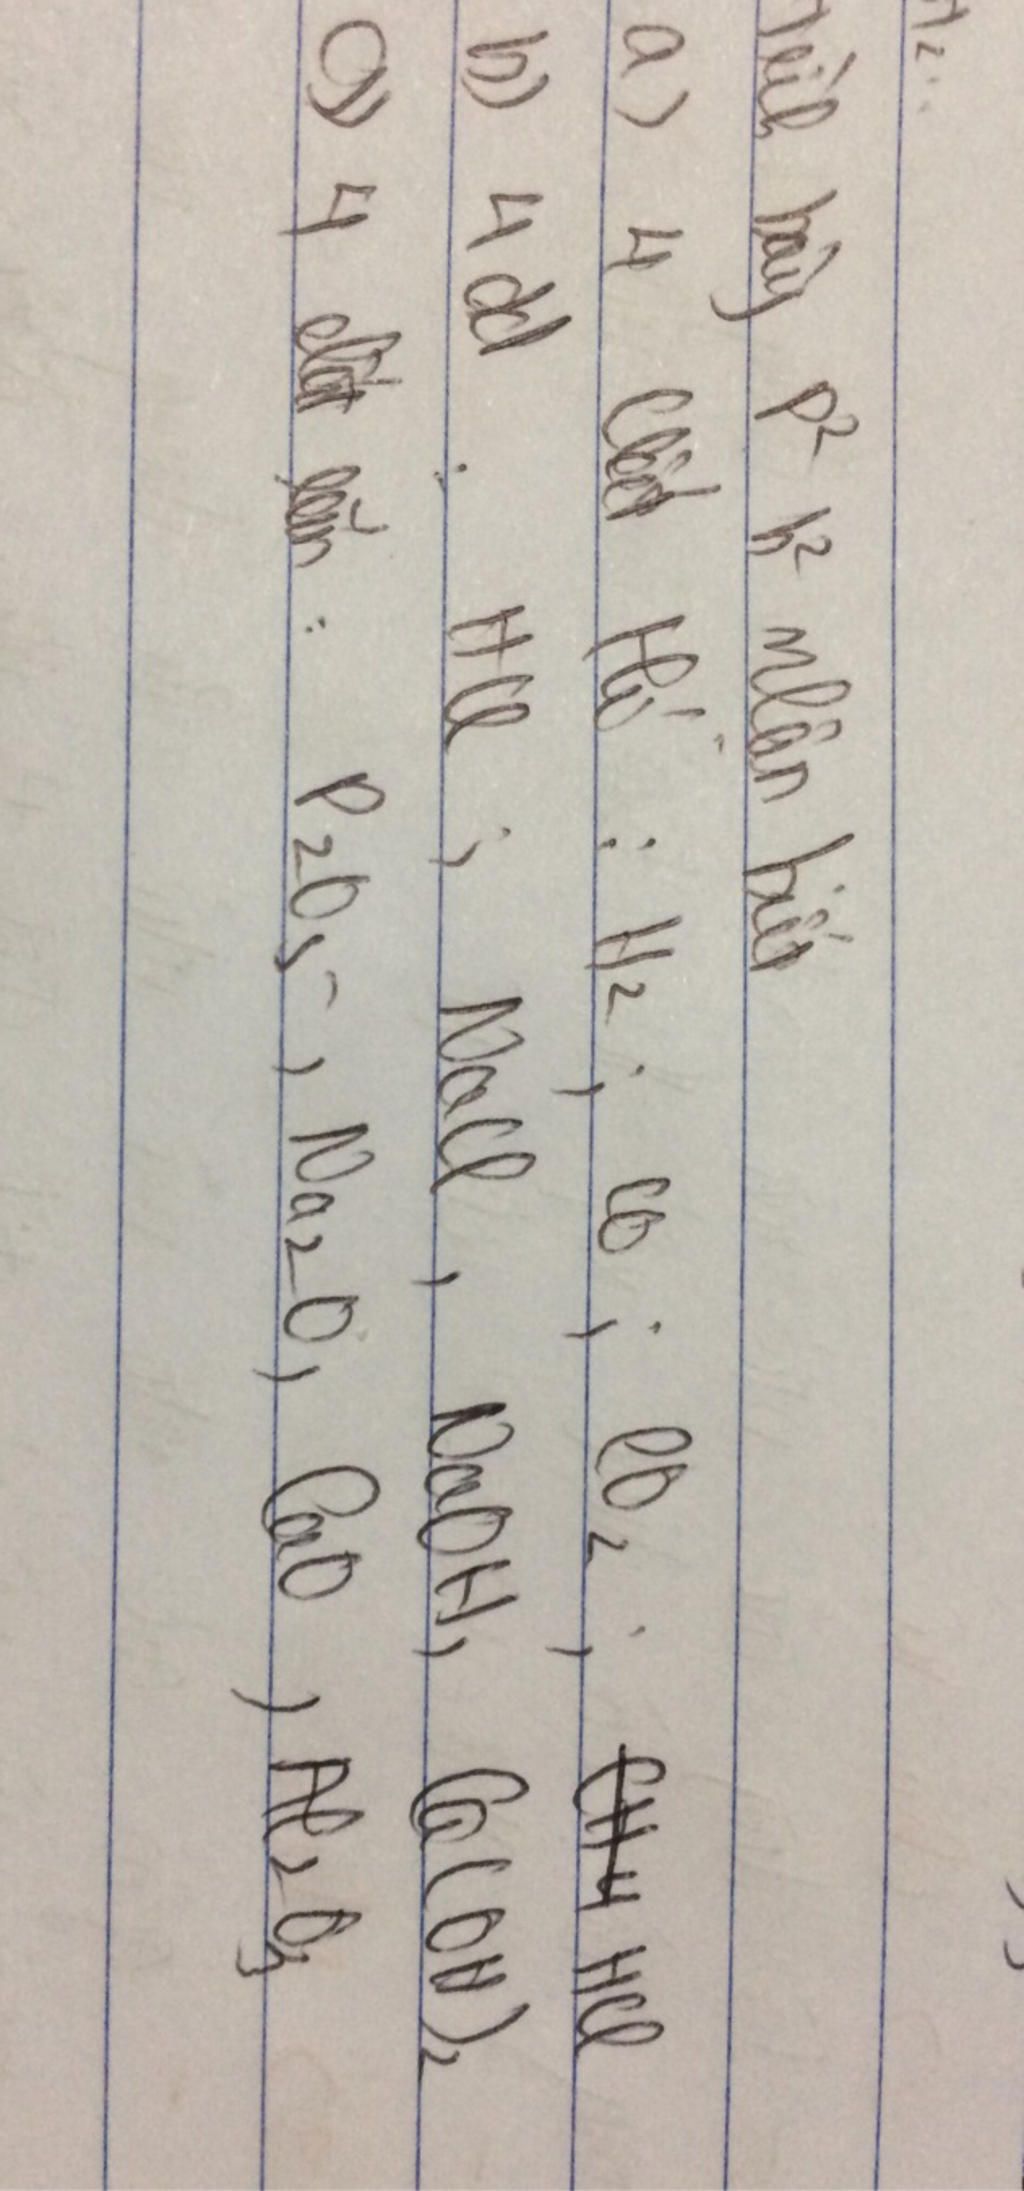 H2:
Trình bày p² h² nhận biết
a) 4 chất khí : H2 ; CO ; CO2 ; HCl
b) 4 dd : HCl ; NaCl , NaOH, Ca(OH)2
c) 4 chất rắn : P2O5 , Na2O, CaO , Al2O3